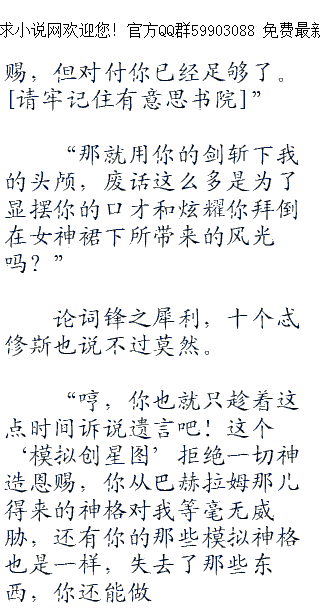 求小说网欢迎您！官方QQ群59903088 免费最新
赐，但对付你已经足够了。
[请牢记住有意思书院]”
“那就用你的剑斩下我
的头颅，废话这么多是为了
显摆你的口才和炫耀你拜倒
在女神裙下所带来的风光
吗？”
论词锋之犀利，十个忒
修斯也说不过莫然。
“哼，你也就只趁着这
点时间诉说遗言吧！这个
‘模拟创星图’拒绝一切神
造恩赐，你从巴赫拉姆那儿
得来的神格对我等毫无威
胁，还有你的那些模拟神格
也是一样，失去了那些东
西，你还能做